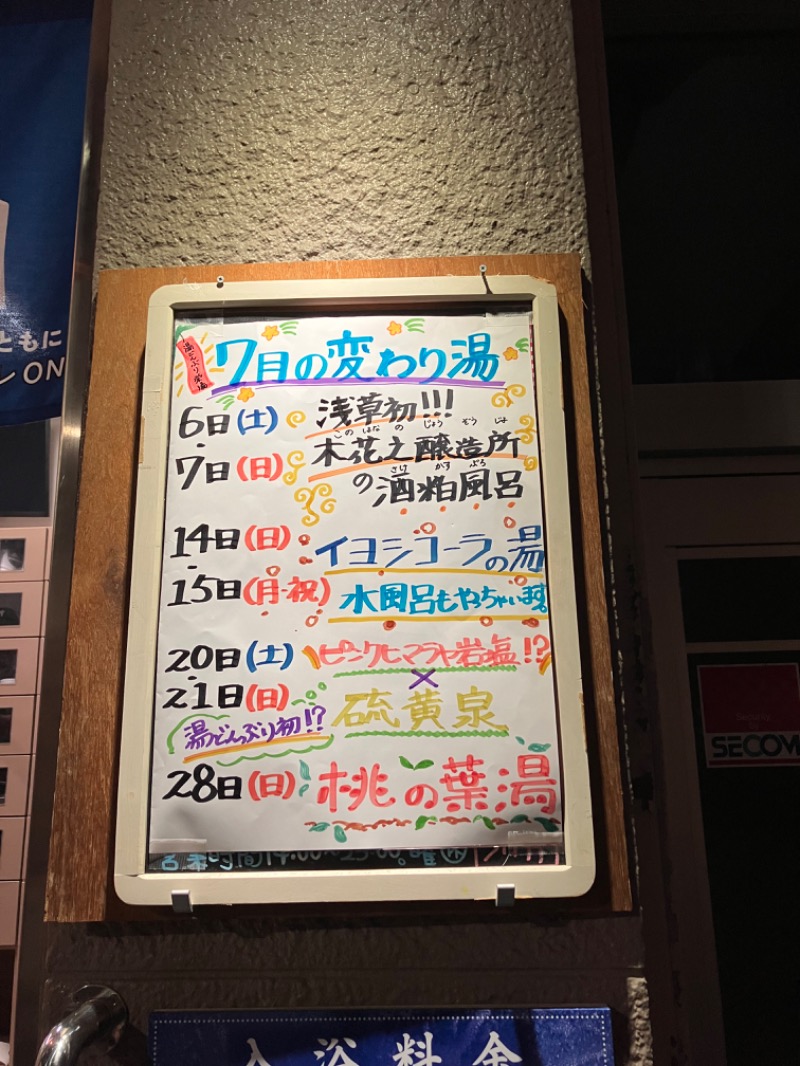 ともに
ON
湯どんぶり栄湯
7月の変わり湯
6日(土)
・
7日(日)
浅草初!!!
このはなのじょうぞうじょ
木花之醸造所
さけかすぶろ
の酒粕風呂
14日(日)
・
15日(月・祝)
イヨシコーラの湯
水風呂もやっちゃいます。
20日(土)
・
21日(日)
湯どんぶり初!?
ピンクヒマラヤ岩塩!?
×
硫黄泉
28日(日)
桃の葉湯
SECOM
入浴料金